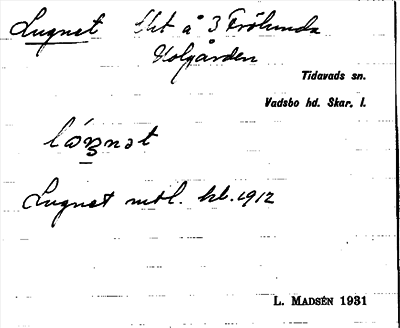 Lugnet Lht å 3 Frölunda
Holgården
Tidavads sn.
Vadsbo hd. Skar. l.
Lugnet mtl. kb. 1912
L. MADSÉN 1931